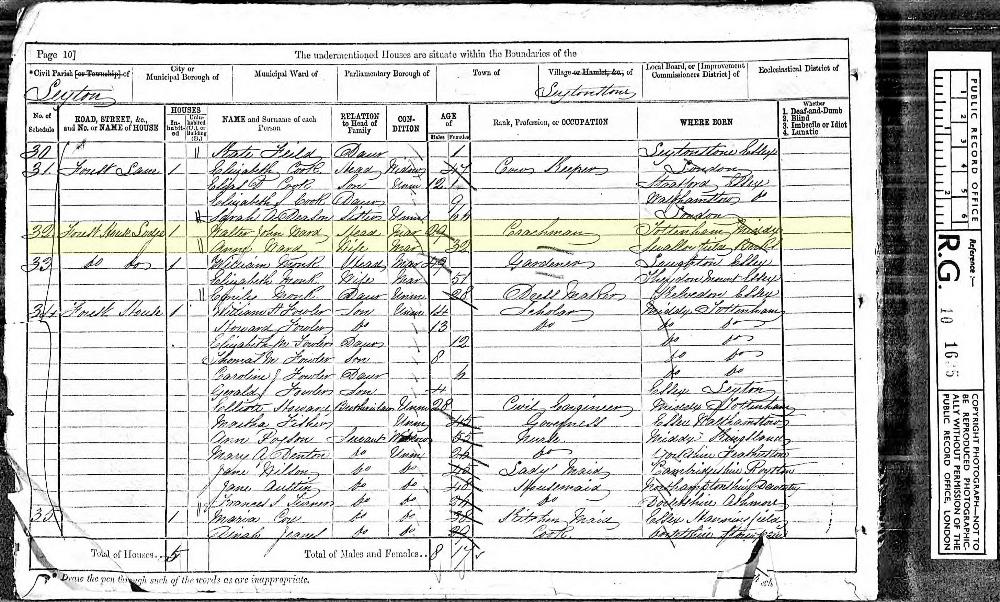 Page 10]
The undermentioned Houses are situate within the Boundaries of the
*Civil Parish [or Township] of
City or Municipal Borough of
Municipal Ward of
Parliamentary Borough of
Town of
Village or Hamlet, &c., of
Local Board, or [Improvement Commissioners District] of
Ecclesiastical District of
Leyton
Leytonstone
No. of Schedule
ROAD, STREET, &c., and No. or NAME of HOUSE
HOUSES
In-habit-ed
Uninhabited (U.), or Building (B.)
NAME and Surname of each Person
RELATION to Head of Family
CON-DITION
AGE of
Males
Females
Rank, Profession, or OCCUPATION
WHERE BORN
Whether
1. Deaf-and-Dumb
2. Blind
3. Imbecile or Idiot
4. Lunatic
30 Kate Feild Daur 1 Leytonstone Essex
31 Forest Lane 1 Elizabeth Cook Head Widow 47 Cow Keeper London
Cook Son Unm 12 Stratford Essex
Elizabeth S Cook Daur 9 Walthamstow Do
Sarah Deason Sister Unm London
32 Forest House Lodge 1 Walter John Ward Head Mar 29 Coachman Tottenham Middx
Anne Ward Wife Mar 32
33 Do Do 1 William Monk Head Mar Gardener Loughton Essex
Elizabeth Monk Wife Mar 51 Theydon Mount Essex
Emily Monk Daur Unm 28 Dress Maker Kelvedon Essex
34 Forest House 1 William H Fowler Son Unm 14 Scholar Middx Tottenham
Howard Fowler Do 13 Do Do Do
Elizabeth M Fowler Daur 12 Do Do
Thomas M Fowler Son 8 Do Do
Caroline J Fowler Daur 6 Do Do
Gerald Fowler Son 4 Essex Leyton
Elliott Howard Unm 28 Civil Engineer Middx Tottenham
Martha Fisher Unm 45 Governess Essex Walthamstow
Ann Servant Widow 65 Nurse Middx Kingsland
Mary A Denton Do Unm Yorkshire
Jane Wilson Do Do Lady's Maid Cambridgeshire Royston
Jane Austin Do Do Housemaid Northamptonshire Daventry
Frances S Turner Do Do Do Ashmore
35 1 Maria Cox Do Do Kitchen Maid Essex
Do Do 29 Cook
Total of Houses... 5
Total of Males and Females... 8 17
* Draw the pen through such of the words as are inappropriate.
PUBLIC RECORD OFFICE
1
2
Reference:—
R.G. 10
COPYRIGHT PHOTOGRAPH—NOT TO BE REPRODUCED PHOTOGRAPHICALLY WITHOUT PERMISSION OF THE PUBLIC RECORD OFFICE, LONDON